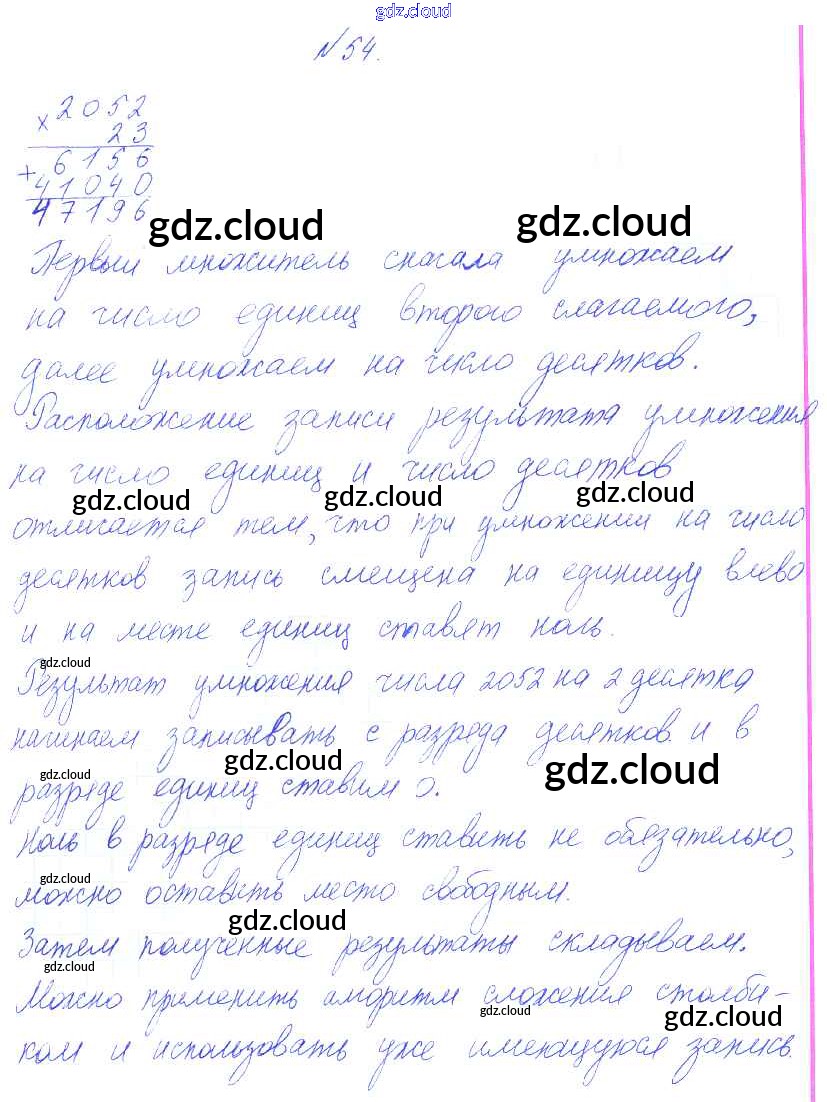 gdz.cloud
№54.
× 2052
23
+ 6156
41040
47196
gdz.cloud gdz.cloud
Первый множитель сначала умножаем
на число единиц второго слагаемого,
далее умножаем на число десятков.
Расположение записи результата умножения
на число единиц и число десятков
gdz.cloud gdz.cloud gdz.cloud
отличается тем, что при умножении на число
десятков запись смещена на единицу влево
и на месте единиц ставят ноль.
gdz.cloud
Результат умножения числа 2052 на 2 десятка
начинаем записывать с разряда десятков и в
gdz.cloud gdz.cloud gdz.cloud
разряде единиц ставим 0.
Ноль в разряде единиц ставить не обязательно,
gdz.cloud
можно оставить место свободным.
gdz.cloud
Затем полученные результаты складываем.
gdz.cloud
Можно применить алгоритм сложения столби-
gdz.cloud gdz.cloud
ком и использовать уже имеющуюся запись.